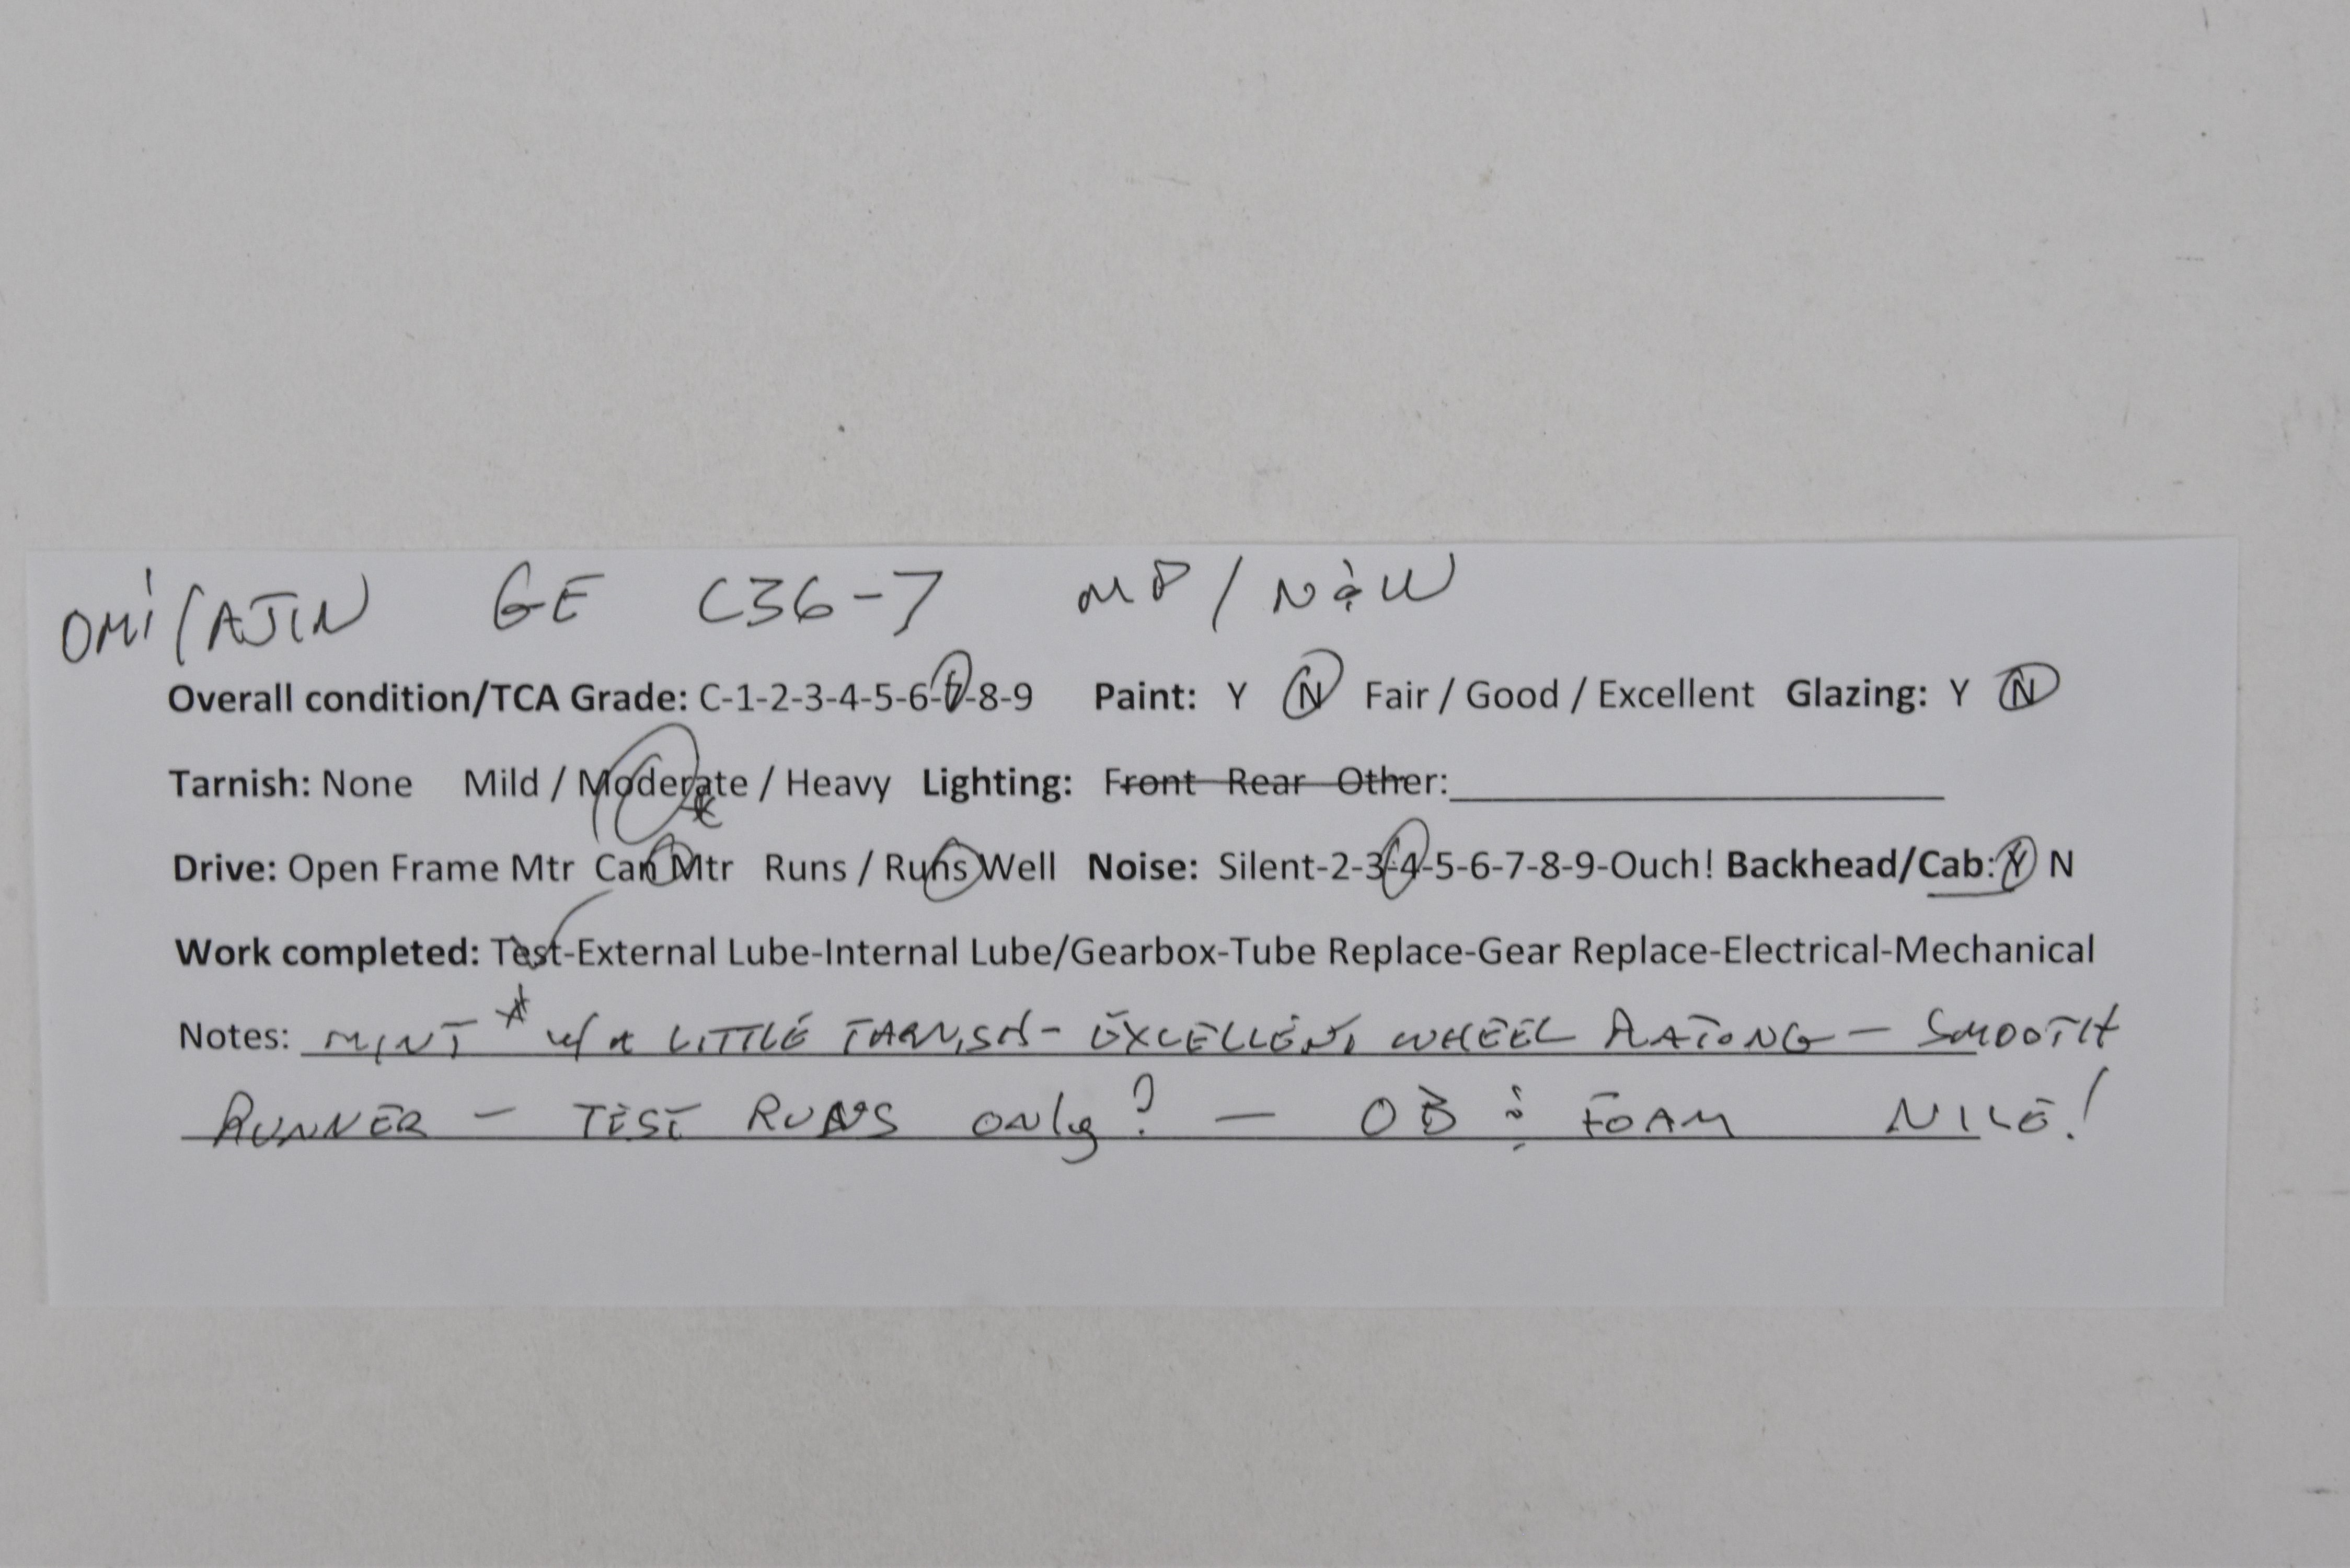 OMI/AJIN GE C36-7 MP/N&W
Overall condition/TCA Grade: C-1-2-3-4-5-6-7-8-9 Paint: Y N Fair / Good / Excellent Glazing: Y N
Tarnish: None Mild / Moderate / Heavy Lighting: Front Rear Other:
*
Drive: Open Frame Mtr Can Mtr Runs / Runs Well Noise: Silent-2-3-4-5-6-7-8-9-Ouch! Backhead/Cab: Y N
Work completed: Test-External Lube-Internal Lube/Gearbox-Tube Replace-Gear Replace-Electrical-Mechanical
Notes: MINT * w/ a LITTLE TARNISH - EXCELLENT WHEEL PLATING - SMOOTH
RUNNER - TEST RUNS ONLY? - OB & FOAM NICE!